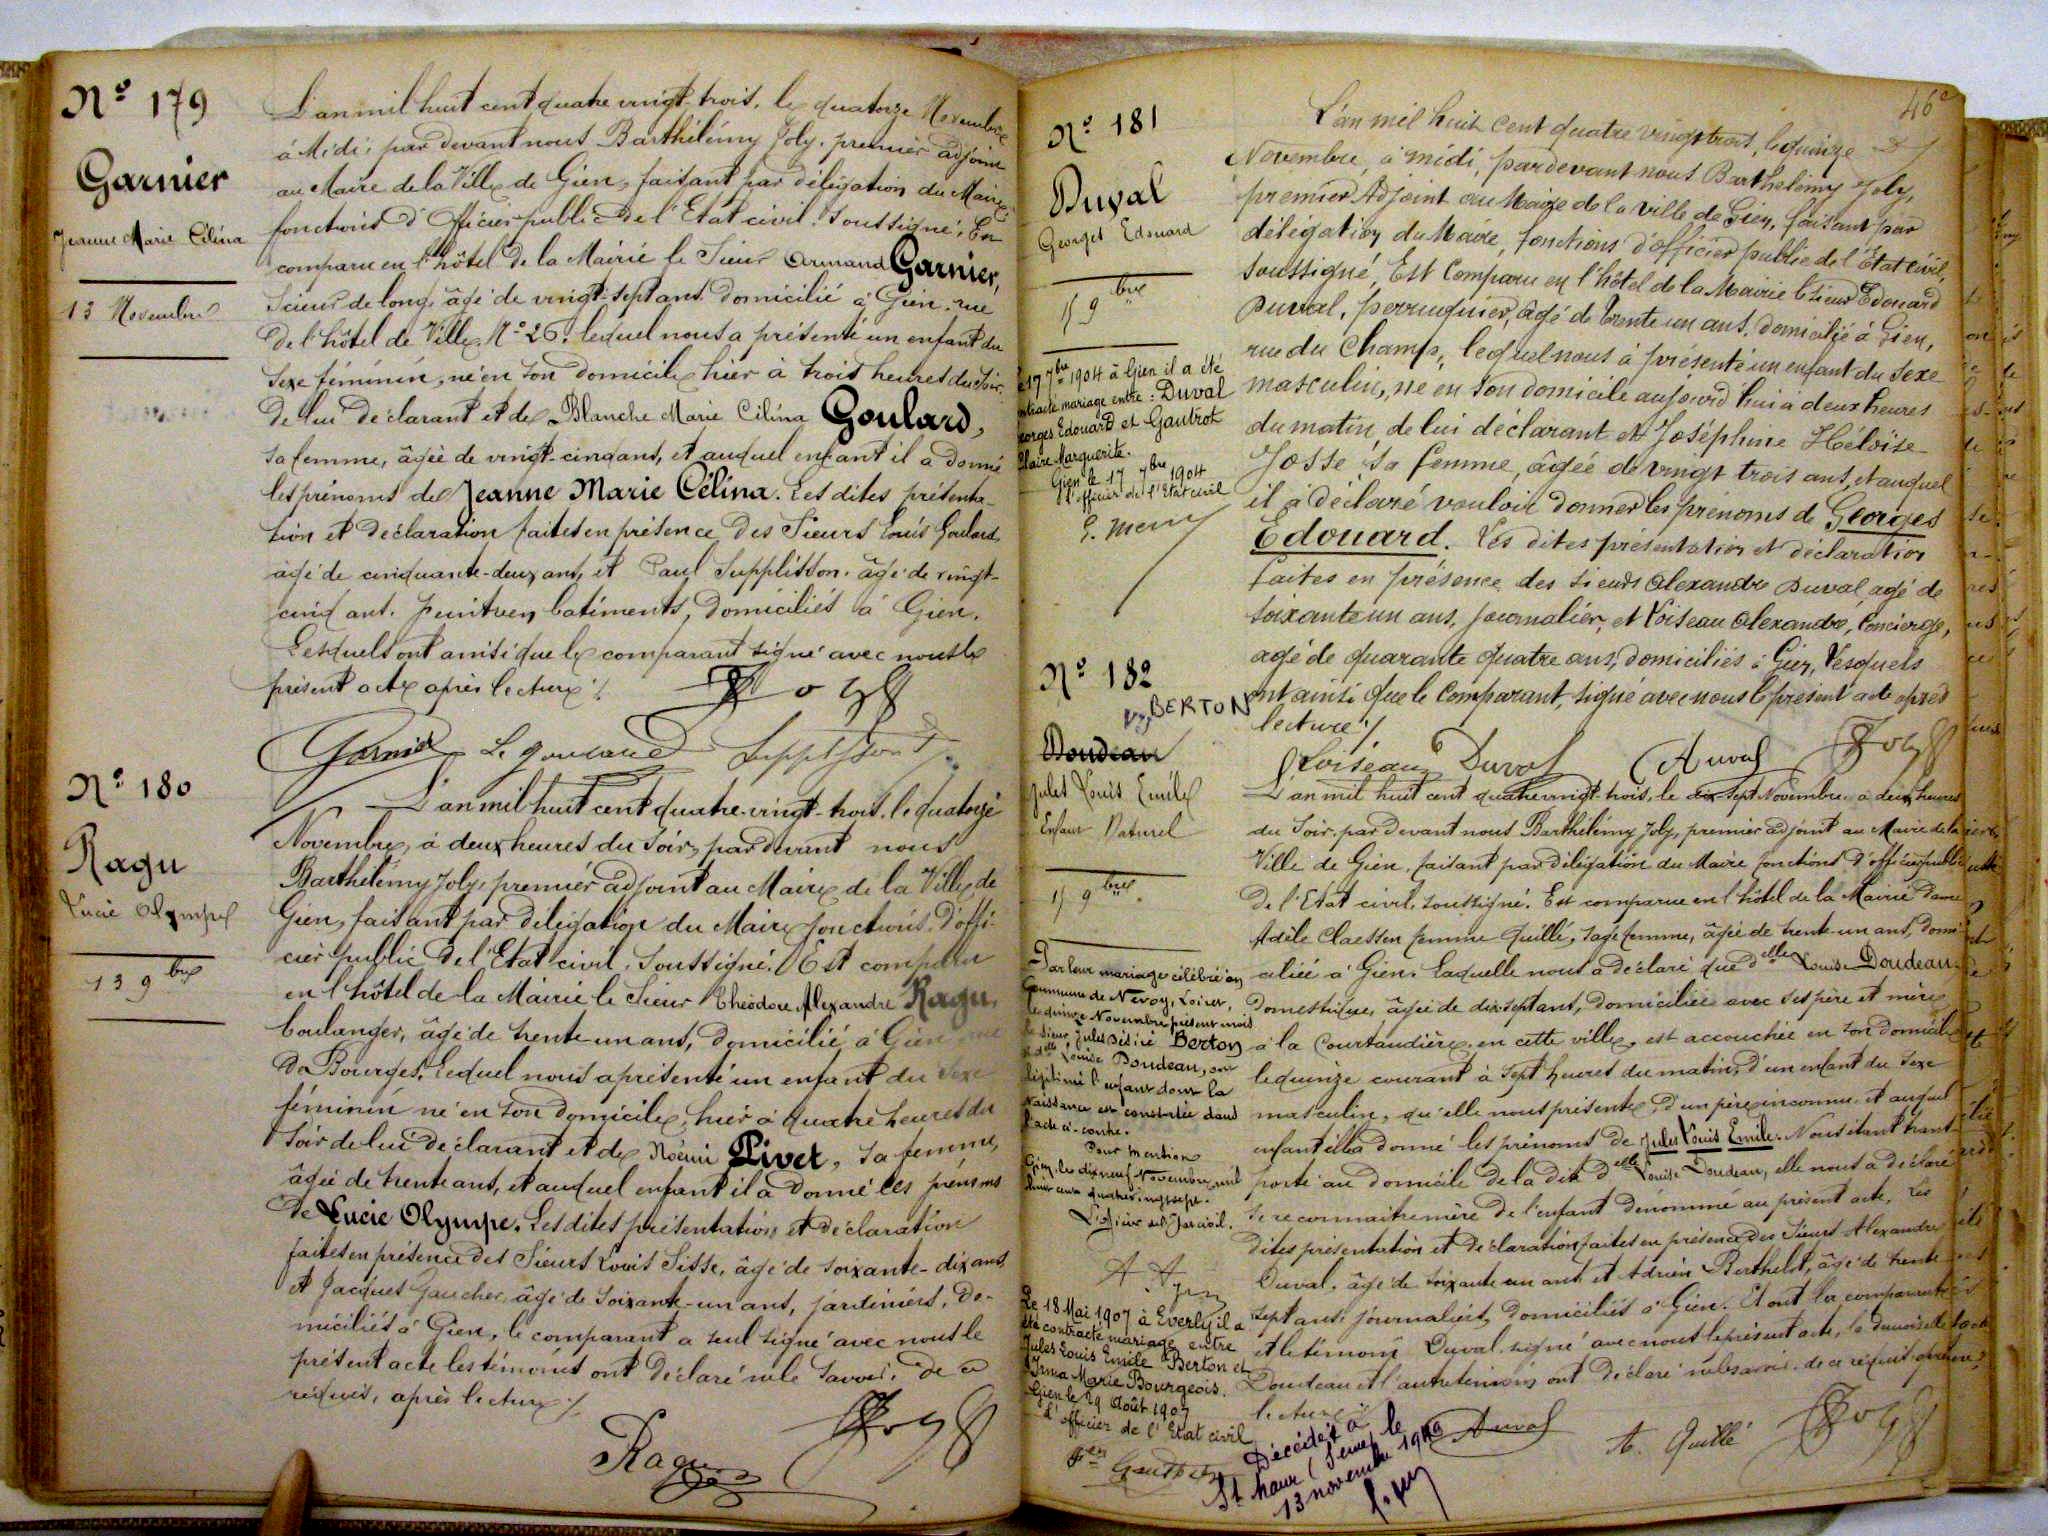 Nº 179
Garnier
Jeanne Marie Célina
13 Novembre
L'an mil huit cent quatre vingt-trois, le quatorze Novembre
à Midi, par devant nous Barthélémy Joly, premier adjoint
au Maire de la Ville de Gien, faisant par délégation du Maire
fonctions d'Officier public de l'Etat civil soussigné, Est
comparu en l'hôtel de la Mairie le Sieur Armand Garnier,
Scieur de long, âgé de vingt-sept ans, domicilié à Gien, rue
de l'hôtel de Ville, Nº 26, lequel nous a présenté un enfant du
sexe féminin, né en son domicile hier à trois heures du soir,
de lui déclarant et de Blanche Marie Célina Goulard,
sa femme, âgée de vingt-cinq ans, et auquel enfant il a donné
les prénoms de Jeanne Marie Célina. Les dites présenta-
tion et déclaration faites en présence des Sieurs Louis Goulard
âgé de cinquante-deux ans, et Paul Supplisson, âgé de vingt-
cinq ans, peintres en batiments, domiciliés à Gien.
Lesquels ont ainsi que le comparant signé avec nous le
présent acte après lecture ./.
Joly
Garnier Le goulard Supplisson
Nº 180
Ragu
Lucie Olympe
13 9bre
L'an mil huit cent quatre-vingt-trois, le quatorze
Novembre, à deux heures du soir, par devant nous
Barthélémy Joly, premier adjoint au Maire de la Ville de
Gien, faisant par délégation du Maire fonctions d'offi-
cier public de l'Etat civil, soussigné, Est comparu
en l'hôtel de la Mairie le Sieur Théodore Alexandre Ragu,
boulanger, âgé de trente-un ans, domicilié à Gien, rue
de Bourges, lequel nous a présenté un enfant du sexe
féminin né en son domicile, hier à quatre heures du
soir de lui déclarant et de Noémi Pivet, sa femme,
âgée de trente ans, et auquel enfant il a donné les prénoms
de Lucie Olympe. Les dites présentation et déclaration
faites en présence des Sieurs Louis Sisse, âgé de soixante-dix ans,
et Jacques Gaucher, âgé de soixante-un ans, jardiniers, do-
miciliés à Gien, le comparant a seul signé avec nous le
présent acte les témoins ont déclaré ne le savoir, de ce
requis, après lecture ./.
Ragu Joly
46e
Nº 181
Duval
Georges Edouard
15 9bre
Le 17 7bre 1904 à Gien il a été
contracté mariage entre : Duval
Georges Edouard et Gautrot
Claire Marguerite.
Gien le 17 7bre 1904
L'officier de l'Etat civil
L'an mil huit cent quatre vingt trois, le quinze
Novembre, à midi, pardevant nous Barthelémy Joly,
premier Adjoint au Maire de la ville de Gien, faisant par
délégation du Maire, fonctions d'officier public de l'État civil,
soussigné, Est Comparu en l'hôtel de la Mairie le sieur Edouard
Duval, perruquier, âgé de trente un ans, domicilié à Gien,
rue du Champ, lequel nous à présenté un enfant du sexe
masculin, né en son domicile aujourd'hui à deux heures
du matin, de lui déclarant et Joséphine Héloïse
Josse sa femme, âgée de vingt trois ans, et auquel
il à déclaré vouloir donner les prénoms de Georges
Edouard. Les dites présentation et déclaration
faites en présence des sieurs Alexandre Duval agé de
soixante un ans, journalier, et Loiseau Alexandre, Concierge,
agé de quarante quatre ans, domiciliés à Gien, Lesquels
ont ainsi que le Comparant, signé avec nous le présent acte après
lecture ./
Loiseau Duval A Duval Joly
Nº 182
BERTON
Doudeau
Jules Louis Emile
Enfant Naturel
15 9bre
Par leur mariage célébré en
Commune de Nevoy, Loiret,
le quinze Novembre présent mois
le sieur Jules Désiré Berton
et delle Louise Doudeau, ont
légitimé l'enfant dont la
naissance est constatée dans
l'acte ci-contre.
Pour mention
Gien, le dix neuf Novembre mil
huit cent quatre vingt sept.
L'officier de l'état civil.
Le 18 Mai 1907 à Everly il a
été contracté mariage entre
Jules Louis Emile Berton et
Irma Marie Bourgeois.
Gien le 29 Août 1907
L'officier de l'Etat civil
L'an mil huit cent quatre vingt-trois, le dix-sept Novembre, à deux heures
du soir, par devant nous Barthélémy Joly, premier adjoint au Maire de la
Ville de Gien, faisant par délégation du Maire fonctions d'officier public
de l'Etat civil, soussigné. Est comparue en l'hôtel de la Mairie dame
Adèle Claessen femme Quillé, sage femme, âgée de trente-un ans, domi-
ciliée à Gien. Laquelle nous a déclaré que delle Louise Doudeau,
domestique, âgée de dix sept ans, domiciliée avec ses père et mère
à la Courtaudière, en cette ville, est accouchée en son domicile
le quinze courant à sept heures du matin, d'un enfant du sexe
masculin, qu'elle nous présente, d'un père inconnu, et auquel
enfant elle a donné les prénoms de Jules Louis Emile. Nous étant trans-
porté au domicile de la dite delle Louise Doudeau, elle nous a déclaré
se reconnaitre mère de l'enfant dénommé au présent acte. Les
dites présentation et déclaration faites en présence des Sieurs Alexandre
Duval, âgé de soixante un ans et Adrien Berthelot, âgé de trente
sept ans, journaliers, domiciliés à Gien. Et ont la comparante
et le témoin Duval signé avec nous le présent acte, la demoiselle
Doudeau et l'autre témoin ont déclaré ne le savoir de ce requis après
lecture ./.
A Duval A. Quillé Joly
Décédé à
St Maur (Seine) le
13 novembre 1949